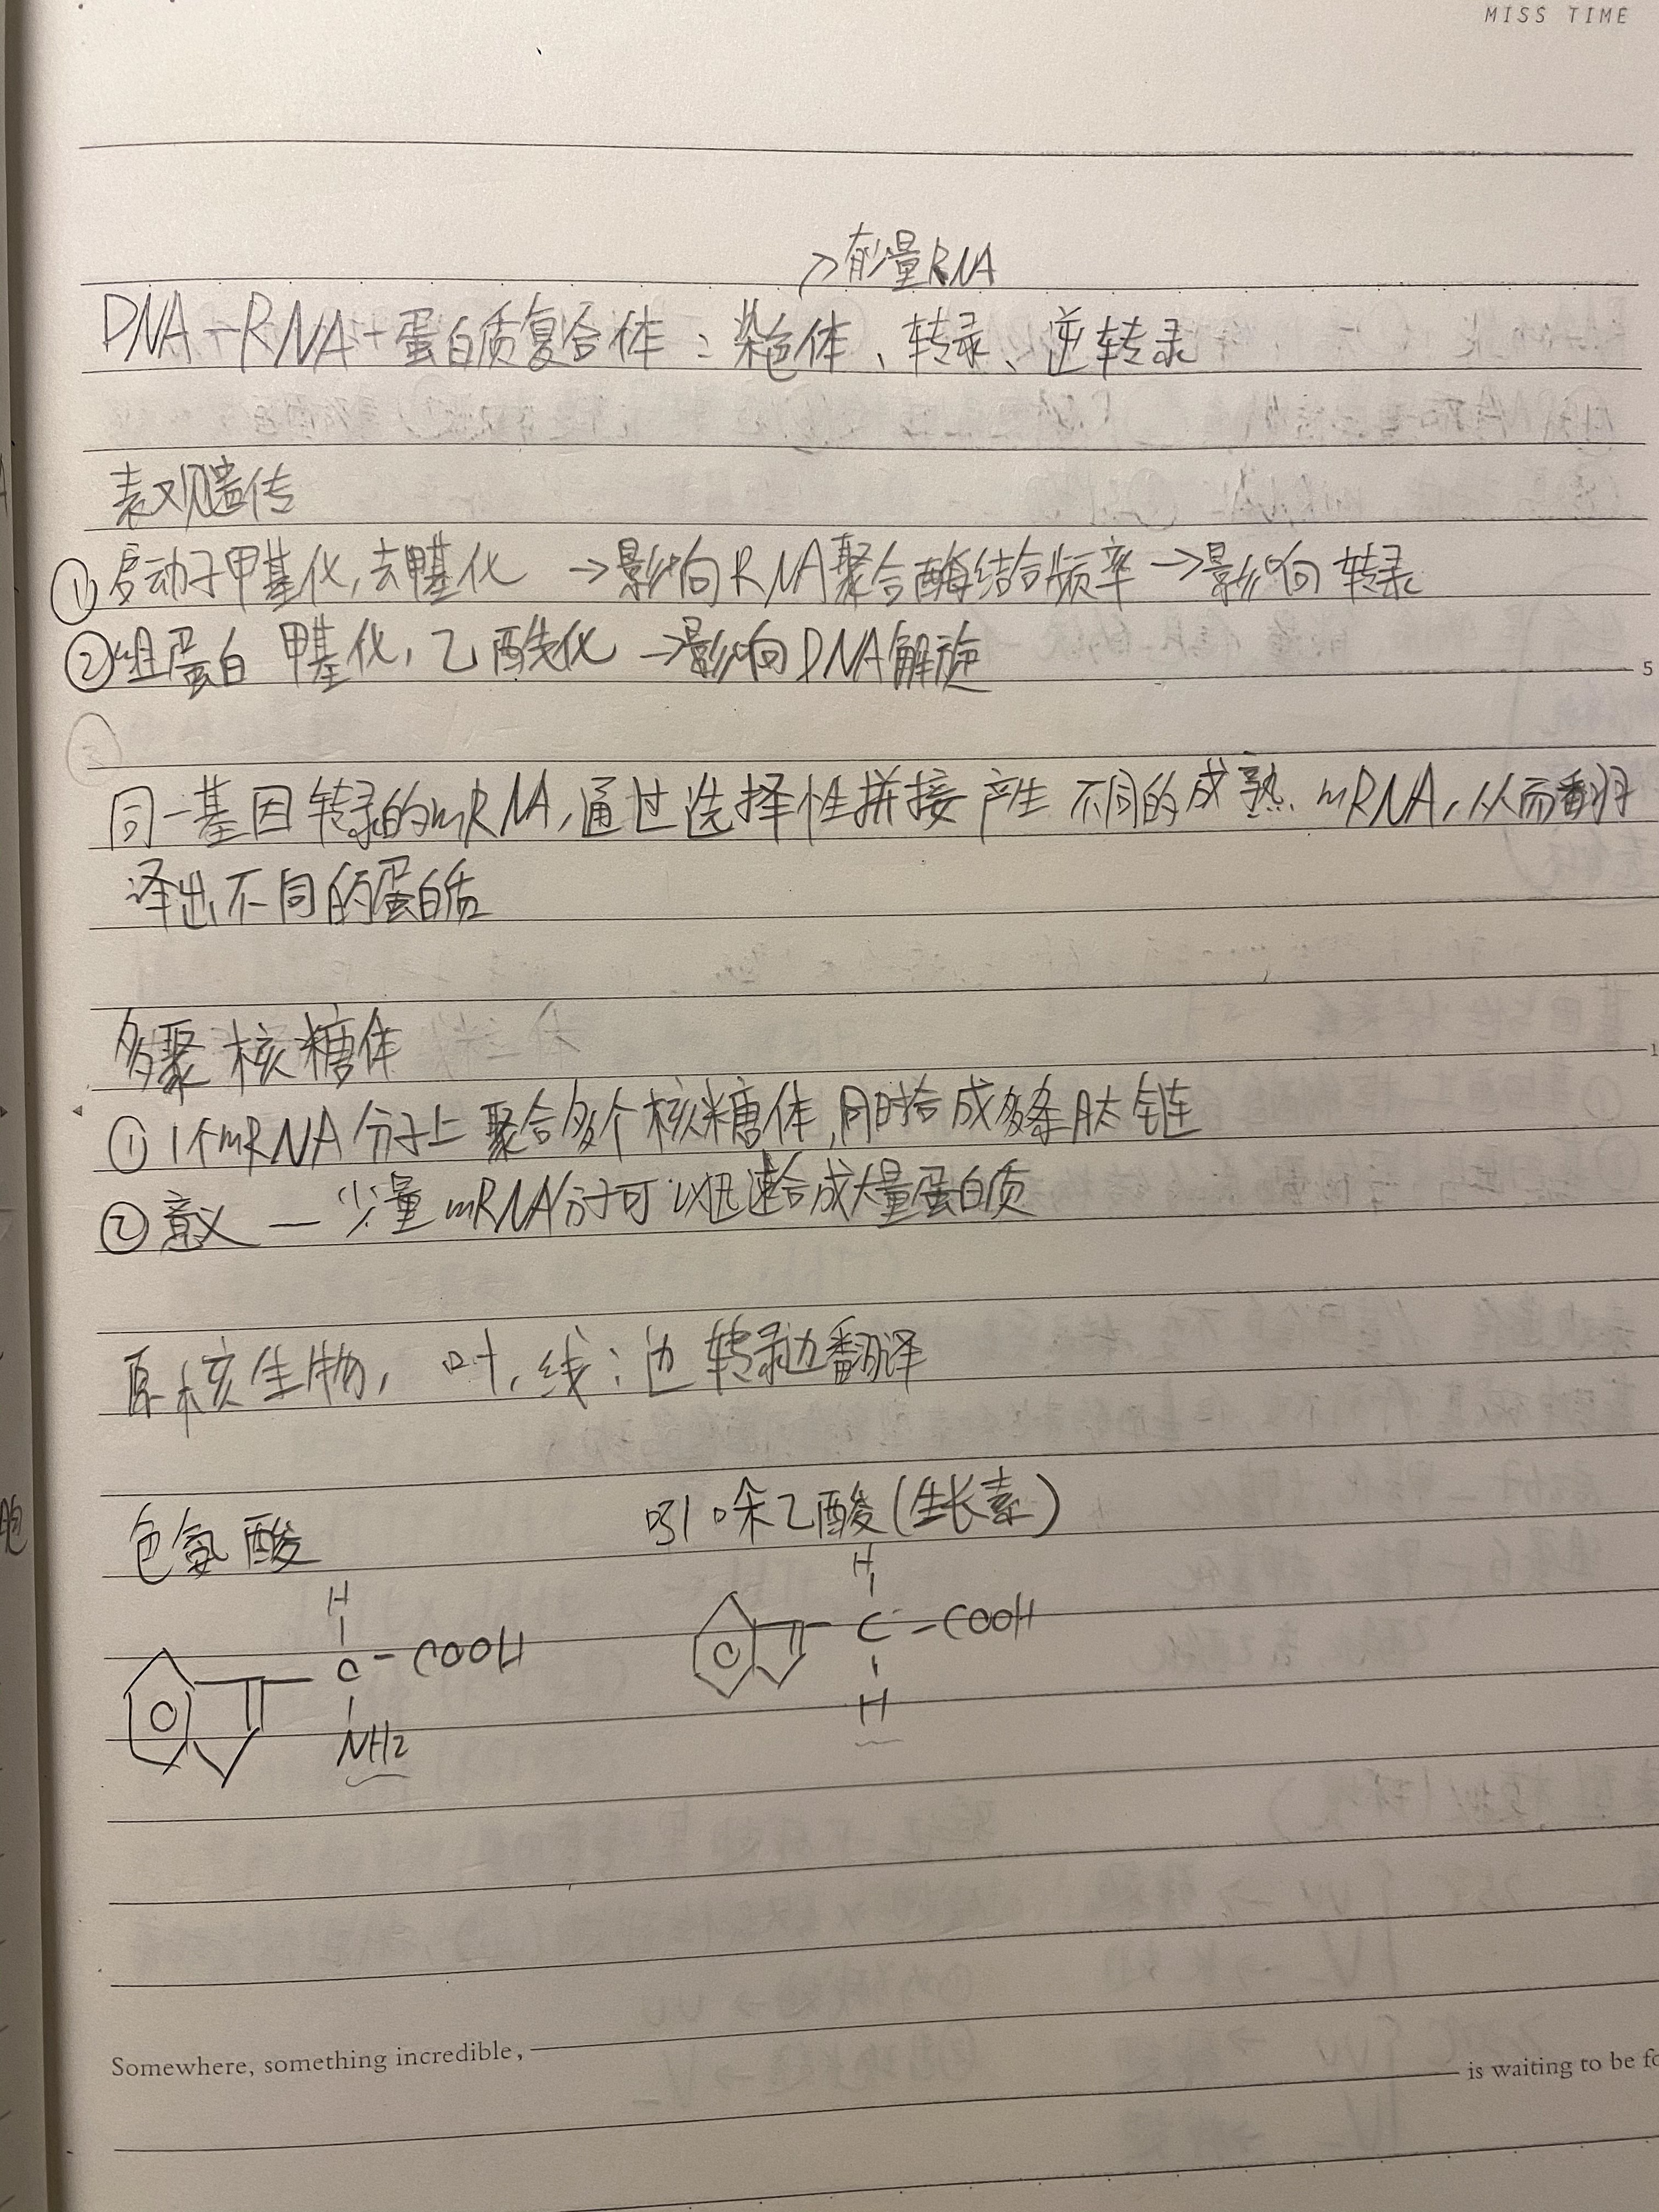 MISS TIME
→有少量RNA
DNA+RNA+蛋白质复合体：染色体、转录、逆转录
表观遗传
①启动子甲基化，去甲基化 →影响RNA聚合酶结合频率 →影响转录
②组蛋白 甲基化，乙酰化 →影响DNA解旋
5
同一基因转录的mRNA，通过选择性拼接产生 不同的成熟 mRNA，从而翻译
译出不同的蛋白质
多聚核糖体
①1个mRNA分子上聚合多个核糖体，同时合成多条肽链
②意义 — 少量mRNA分子可以迅速合成大量蛋白质
原核生物，叶，线：边转录边翻译
色氨酸
吲哚乙酸（生长素）
H
H
C-COOH
C-COOH
NH2
H
Somewhere, something incredible,
is waiting to be